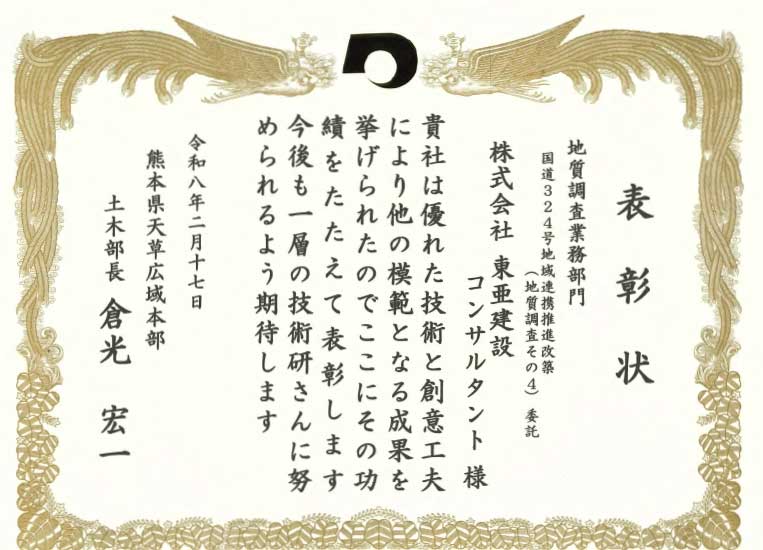 表彰状
地質調査業務部門
国道324号地域連携推進改築
（地質調査その4）委託
株式会社 東亜建設
コンサルタント 様
貴社は優れた技術と創意工夫
により他の模範となる成果を
挙げられたのでここにその功
績をたたえて表彰します
今後も一層の技術研さんに努
められるよう期待します
令和八年二月十七日
熊本県天草広域本部
土木部長 倉光 宏一